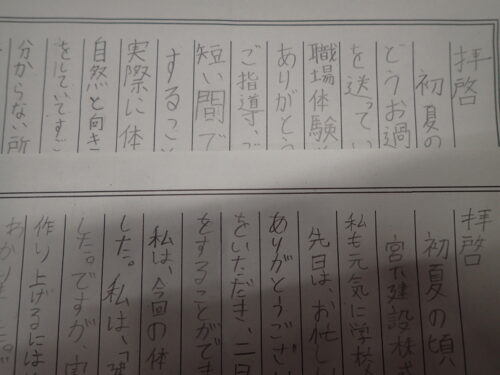 拝啓
初夏の
どうお過
を送ってい
職場体験
ありがとう
ご指導、ご
短い間で
するっこ
実際に体
自然と向き
をしていてすご
分からない所
拝啓
初夏の頃
宮下建設株式
私も元気に学校
先日は、お忙し
ありがとうござい
をいただき、二日
をすることができ
私は、今回の体
した。私は、「建
した。ですが、実
作り上げるには
わかりました。